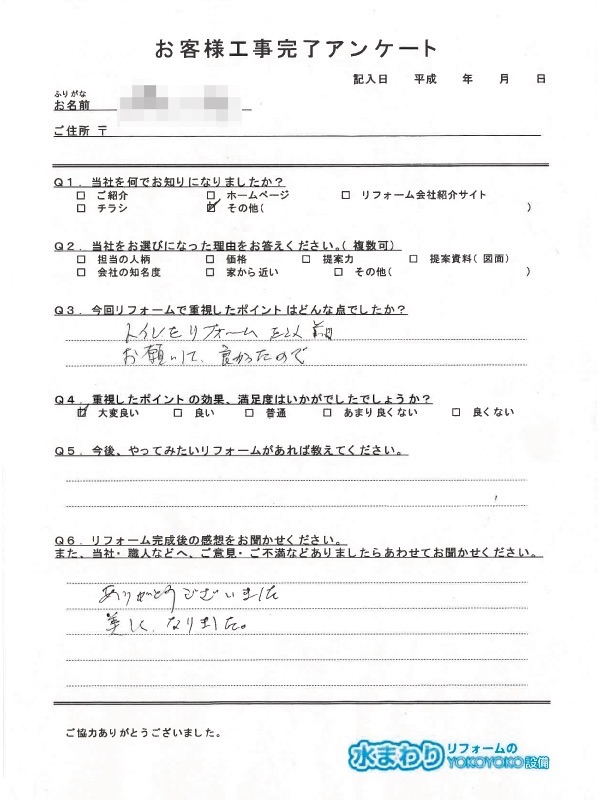 お客様工事完了アンケート
記入日 平成 年 月 日
ふりがな
お名前
ご住所 〒
Q1．当社を何でお知りになりましたか？
□ ご紹介 □ ホームページ □ リフォーム会社紹介サイト
□ チラシ ☑ その他( )
Q2．当社をお選びになった理由をお答えください。( 複数可)
□ 担当の人柄 □ 価格 □ 提案力 □ 提案資料( 図面)
□ 会社の知名度 □ 家から近い □ その他( )
Q3．今回リフォームで重視したポイントはどんな点でしたか？
トイレをリフォームを以前
お願いして、良かったので
Q4．重視したポイントの効果、満足度はいかがでしたでしょうか？
☑ 大変良い □ 良い □ 普通 □ あまり良くない □ 良くない
Q5．今後、やってみたいリフォームがあれば教えてください。
Q6．リフォーム完成後の感想をお聞かせください。
また、当社・職人などへ、ご意見・ご不満などありましたらあわせてお聞かせください。
ありがとうございました
美しく、なりました。
ご協力ありがとうございました。
水まわりリフォームのYOKOYOKO設備